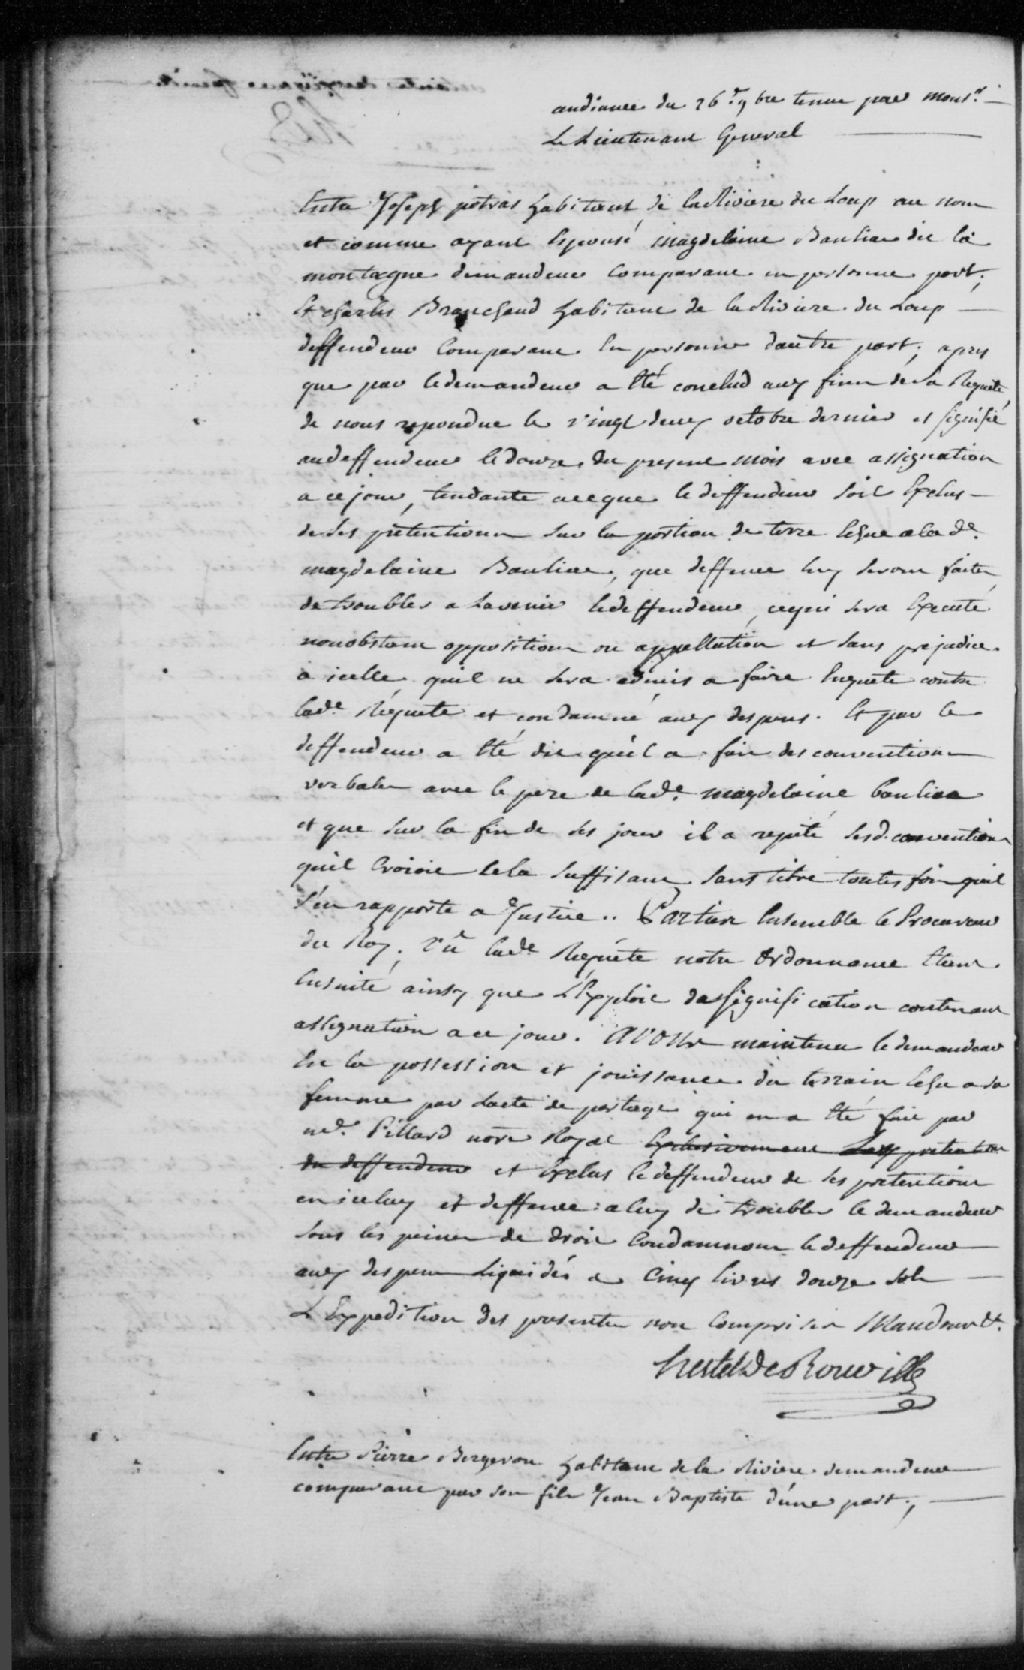 audiance du 26e 9bre tenue par monsr.
Le Lieutenant General
Entre Joseph potvas habitant de la Riviere du Loup au nom
et comme ayant Epousé magdelaine Bauliac dit la
montagne demandeur comparant en personne part;
Et charles Branchaud habitant de la Riviere du Loup
deffendeur Comparant En personne dautre part; apres
que par le demandeur a Eté conclud aux fins de sa Requete
de nous repondue le vingt deux octobre dernier et signifié
au deffendeur le douze du present mois avec assignation
a ce jour, tendante a ceque le deffendeur soit Exclus
de ses pretentions sur la portion de terre Echue a lad.e
magdelaine Bauliac, que deffence luy seront faite
de troubler a Lavenir le deffendeur, cequi sera Executé
nonobstant opposition ou appellation et sans prejudice
a icelle quil ne sera admis a faire Enquete contre
lad.e Requete et condamné aux depens. Et par le
deffendeur a Eté dit quil a fait des conventions
verbales avec le pere de lad.e magdelaine bauliac
et que sur la fin de ses jours il a repeté lesd. conventions
quil croioit cela suffisant sans titre toutes fois quil
s'en rapporte a Justice .. Parties Ensemble le Procureur
du Roy. Vû lad.e Requête notre Ordonnance Etant
Ensuite ainsy que L'Exploit de signification contenant
assignation a ce jour. Avons maintenu le demandeur
En la possession et jouissance du terrain Echu a sa
femme par Lacte de partage qui en a Eté fait par
me. Pillard nore Royal Exclusivement aux pretention
du deffendeur et Exclus le deffendeur de ses pretentions
en iceluy et deffence a luy de troubler le demandeur
sous les peines de droit Condamnons le deffendeur
aux depens Liquidés a Cinq livres douze sols
L'Expedition des presentes non Comprises Mandons &c.
hertel De Rouville
Entre Pierre Bergeron habitant de la Riviere demandeur
comparant par son fils Jean Baptiste d'une part;